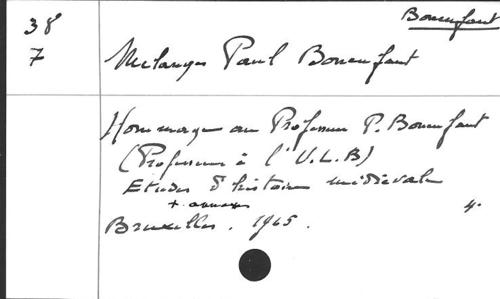 Bonenfant
38
7
Mélanges Paul Bonenfant
Hommage au Professeur P. Bonenfant
(Professeur à l'U.L.B)
Etudes d'histoire médiévale
+ annexes
4°
Bruxelles. 1965.